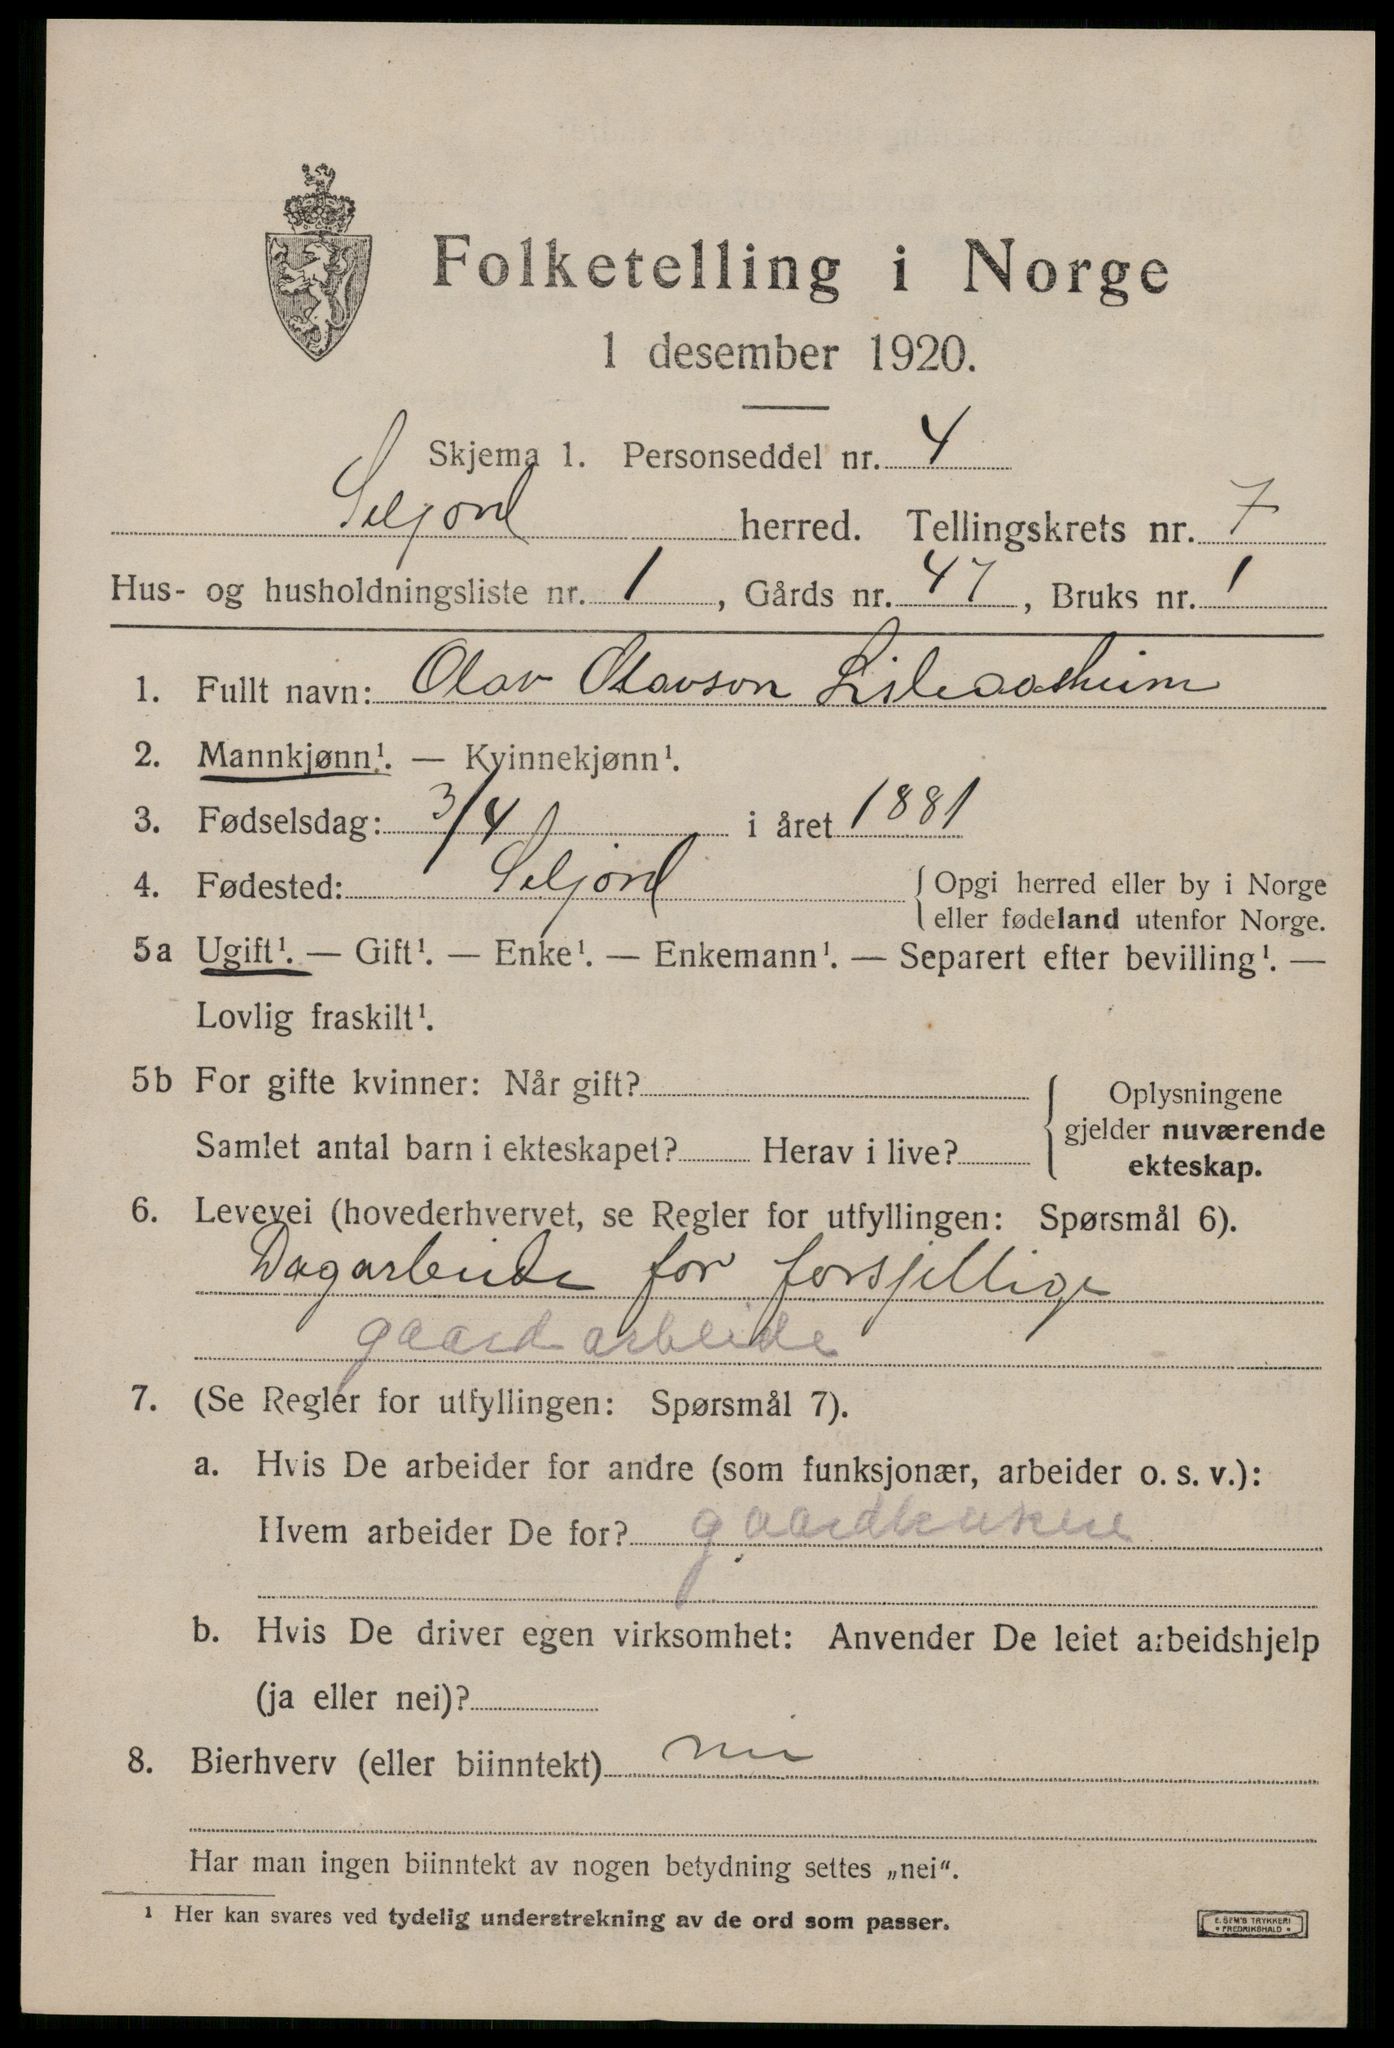 Folketelling i Norge
1 desember 1920.
Skjema 1. Personseddel nr. 4
Seljord herred. Tellingskrets nr. 7
Hus- og husholdningsliste nr. 1, Gårds nr. 47, Bruks nr. 1
1. Fullt navn: Olav Olavson
2. Mannkjønn¹. — Kvinnekjønn¹.
3. Fødselsdag: 3/4 i året 1881
4. Fødested: Seljord { Opgi herred eller by i Norge
eller fødeland utenfor Norge.
5a Ugift¹. — Gift¹. — Enke¹. — Enkemann¹. — Separert efter bevilling¹. —
Lovlig fraskilt¹.
5b For gifte kvinner: Når gift?
Samlet antal barn i ekteskapet? Herav i live?
{ Oplysningene
gjelder nuværende
ekteskap.
6. Levevei (hovederhvervet, se Regler for utfyllingen: Spørsmål 6).
Dagarbeide for forsjellige
gaardarbeide
7. (Se Regler for utfyllingen: Spørsmål 7).
a. Hvis De arbeider for andre (som funksjonær, arbeider o. s. v.):
Hvem arbeider De for?
b. Hvis De driver egen virksomhet: Anvender De leiet arbeidshjelp
(ja eller nei)?
8. Bierhverv (eller biinntekt) nei
Har man ingen biinntekt av nogen betydning settes „nei“.
¹ Her kan svares ved tydelig understrekning av de ord som passer.
E. SEM'S TRYKKERI
• FREDRIKSHALD •